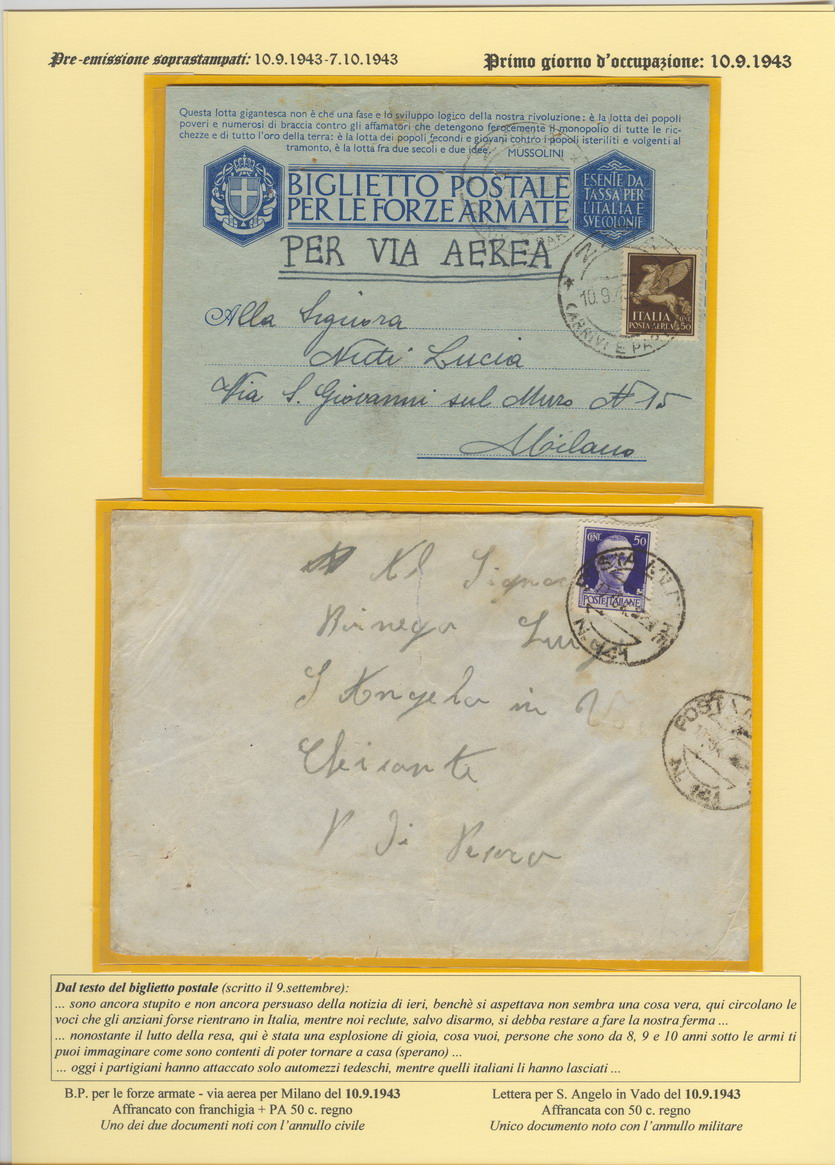 Pre-emissione soprastampati: 10.9.1943-7.10.1943
Primo giorno d'occupazione: 10.9.1943
Questa lotta gigantesca non è che una fase e lo sviluppo logico della nostra rivoluzione: è la lotta dei popoli
poveri e numerosi di braccia contro gli affamatori che detengono ferocemente il monopolio di tutte le ric-
chezze e di tutto l'oro della terra: è la lotta dei popoli fecondi e giovani contro i popoli isteriliti e volgenti al
tramonto, è la lotta fra due secoli e due idee. MUSSOLINI
BIGLIETTO POSTALE
PER LE FORZE ARMATE
ESENTE DA
TASSA PER
L'ITALIA E
SVE COLONIE
PER VIA AEREA
10.9.4
(ARRIVI E PAR
ITALIA
POSTA AEREA 50
Alla Signora
Nuti Lucia
Via S. Giovanni sul Muro N 15
Milano
CENT. 50
POSTE ITALIANE
Al Signor
Luigi
S Angelo in V
P di Pesaro
POSTA
Dal testo del biglietto postale (scritto il 9.settembre):
... sono ancora stupito e non ancora persuaso della notizia di ieri, benchè si aspettava non sembra una cosa vera, qui circolano le
voci che gli anziani forse rientrano in Italia, mentre noi reclute, salvo disarmo, si debba restare a fare la nostra ferma ...
... nonostante il lutto della resa, qui è stata una esplosione di gioia, cosa vuoi, persone che sono da 8, 9 e 10 anni sotto le armi ti
puoi immaginare come sono contenti di poter tornare a casa (sperano) ...
... oggi i partigiani hanno attaccato solo automezzi tedeschi, mentre quelli italiani li hanno lasciati ...
B.P. per le forze armate - via aerea per Milano del 10.9.1943
Affrancato con franchigia + PA 50 c. regno
Uno dei due documenti noti con l'annullo civile
Lettera per S. Angelo in Vado del 10.9.1943
Affrancata con 50 c. regno
Unico documento noto con l'annullo militare